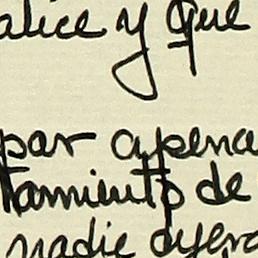 alice y que
par apena
tamiento de
nadie dyera